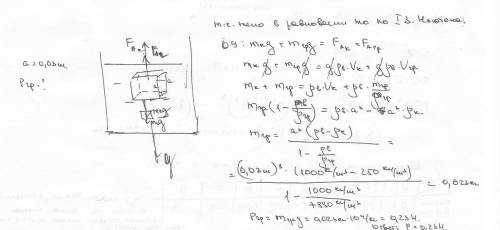 т.к. тело в равновесии то по I З. Ньютона:
a = 0,03м
Pгр - ?
F_Aк F_Aгр
a
mg
y
ОУ: mкg + mгрg = F_Aк + F_Aгр
mкg + mгрg = gρв·Vк + gρв·Vгр
mк + mгр = ρв·Vк + ρв·mгр/ρгр
mгр(1 - ρв/ρгр) = ρв·a³ - a³·ρк
mгр = a³(ρв - ρк) / (1 - ρв/ρгр) =
= (0,03м)³·(1000кг/м³ - 250кг/м³) / (1 - 1000кг/м³ / 7880кг/м³) = 0,023кг
Pгр = mгрg = 0,023кг·10Н/кг = 0,23Н.
Ответ: P = 0,23Н